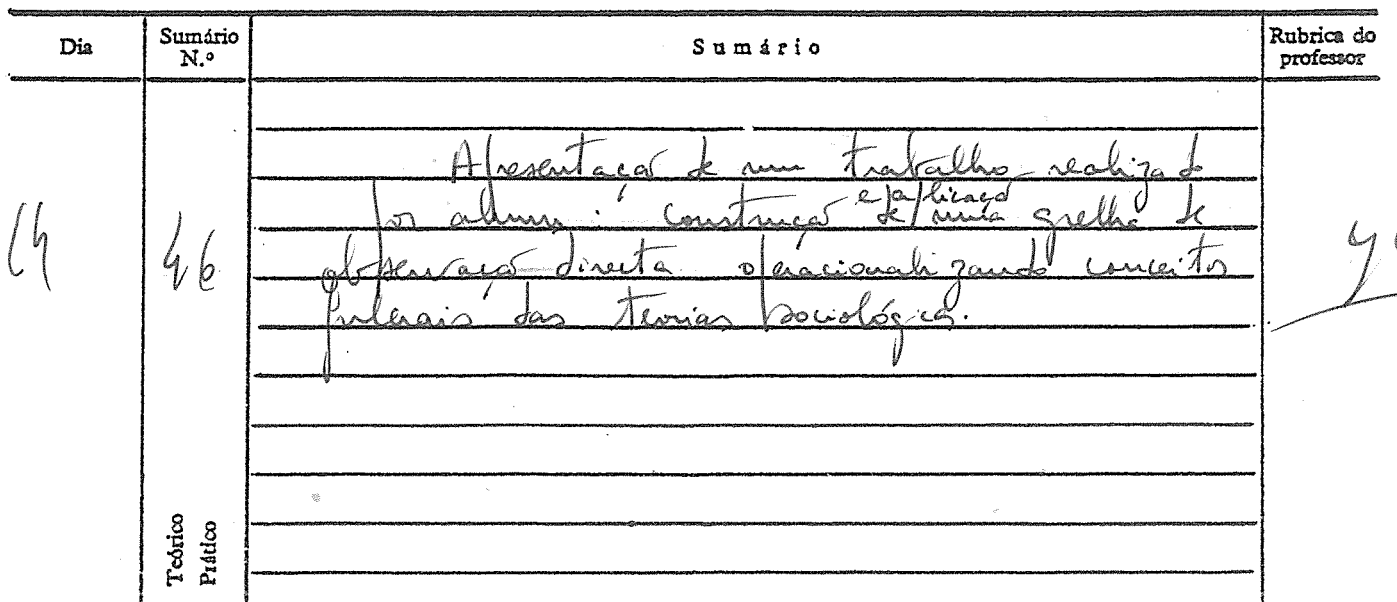 Dia
Sumário N.º
Sumário
Rubrica do professor
Apresentação de um trabalho realizado
por alunos: construção e aplicação de uma grelha de
observação directa operacionalizando conceitos
das teorias sociológicas.
46
Teórico
Prático